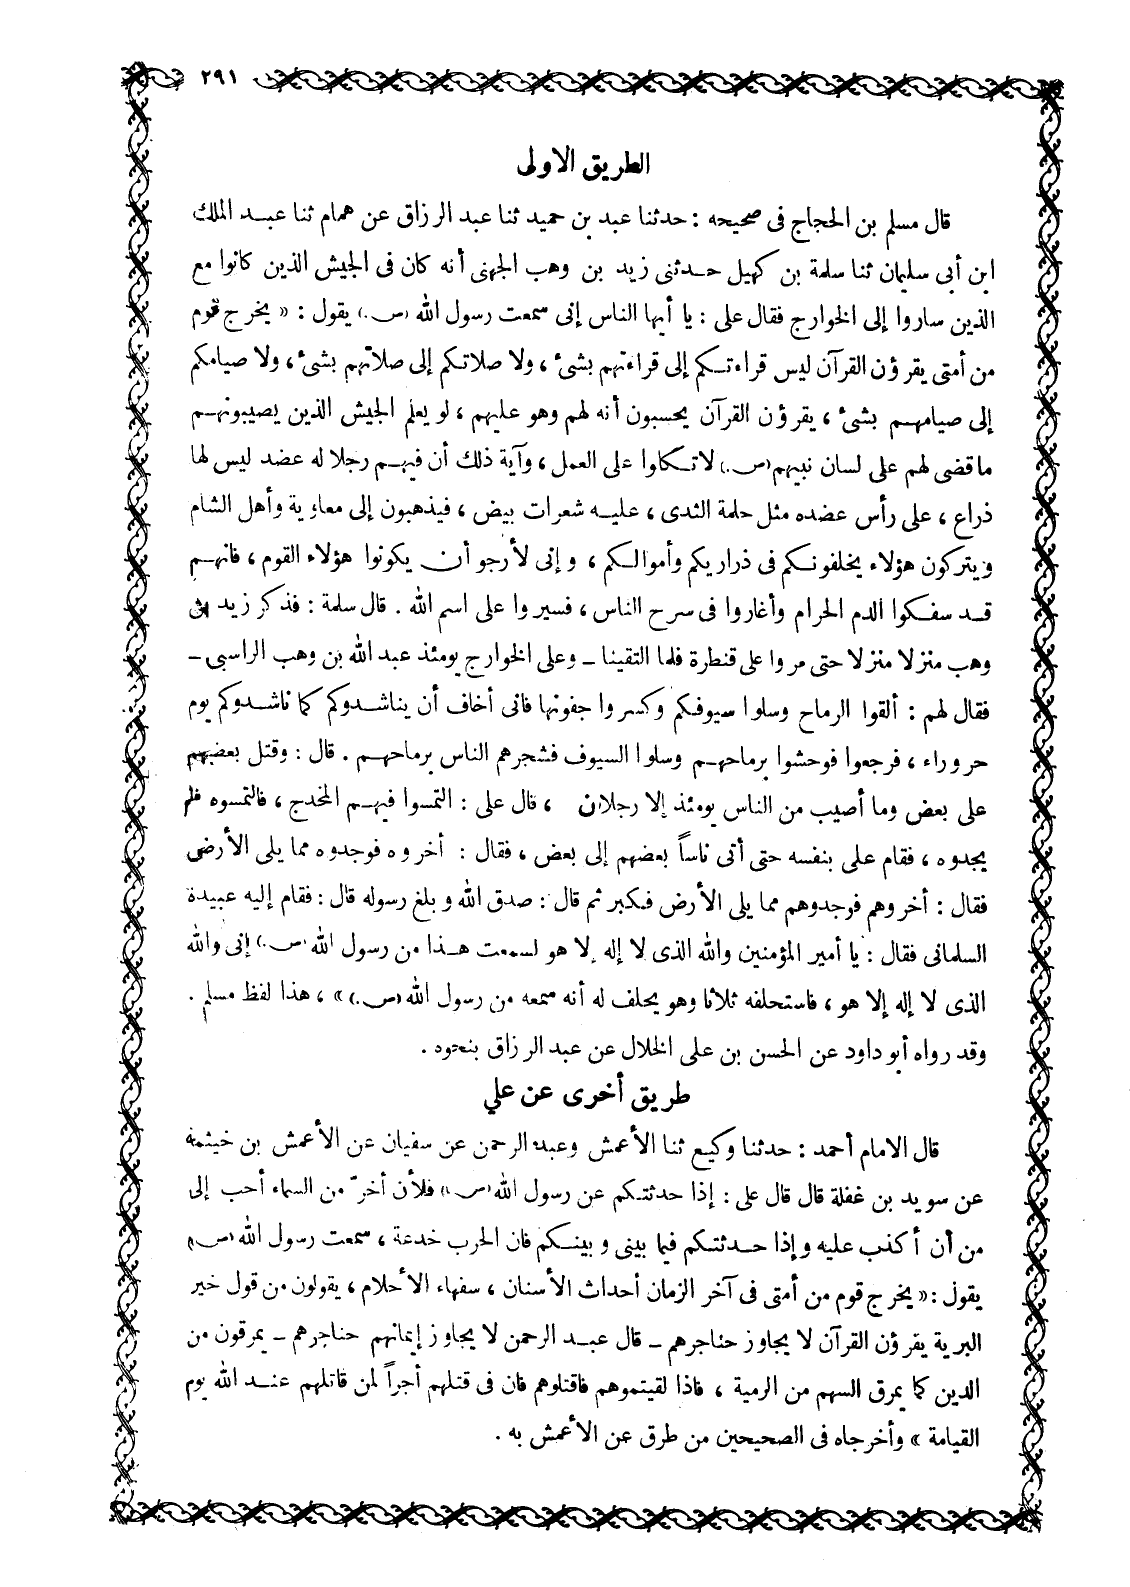 ٢٩١
الطريق الاولى
قال مسلم بن الحجاج فى صحيحه : حدثنا عبد بن حميد ثنا عبد الرزاق عن همام ثنا عبد الملك
ابن أبى سليمان ثنا سلمة بن كهيل حدثنى زيد بن وهب الجهنى أنه كان فى الجيش الذين كانوا مع
الذين ساروا إلى الخوارج فقال على : يا أيها الناس إنى سمعت رسول الله (ص.) يقول : « يخرج قوم
من أمتى يقرؤن القرآن ليس قراءتكم إلى قراءتهم بشئ ، ولا صلاتكم إلى صلاتهم بشئ ، ولا صيامكم
إلى صيامهم بشئ ، يقرؤن القرآن يحسبون أنه لهم وهو عليهم ، لو يعلم الجيش الذين يصيبونهم
ما قضى لهم على لسان نبيهم (ص.) لاتكاوا على العمل ، وآية ذلك أن فيهم رجلا له عضد ليس لها
ذراع ، على رأس عضده مثل حلمة الثدى ، عليه شعرات بيض ، فيذهبون إلى معاوية وأهل الشام
ويتركون هؤلاء يخلفونكم فى ذراريكم وأموالكم ، و إنى لأرجو أن يكونوا هؤلاء القوم ، فانهم
قد سفكوا الدم الحرام وأغاروا فى سرح الناس ، فسيروا على اسم الله . قال سلمة : فذكر زيد بن
وهب منزلا منزلا حتى مروا على قنطرة فلما التقينا ــ وعلى الخوارج يومئذ عبد الله بن وهب الراسبى ــ
فقال لهم : ألقوا الرماح وسلوا سيوفكم وكسروا جفونها فانى أخاف أن يناشدوكم كما ناشدوكم يوم
حروراء ، فرجعوا فوحشوا برماحهم وسلوا السيوف فشجرهم الناس برماحهم . قال : وقتل بعضهم
على بعض وما أصيب من الناس يومئذ إلا رجلان ، قال على : التمسوا فيهم المخدج ، فالتمسوه فلم
يجدوه ، فقام على بنفسه حتى أتى ناساً بعضهم إلى بعض ، فقال : أخروه فوجدوه مما يلى الأرض
فقال : أخروهم فوجدوهم مما يلى الأرض فكبر ثم قال : صدق الله و بلغ رسوله قال : فقام إليه عبيدة
السلمانى فقال : يا أمير المؤمنين والله الذى لا إله إلا هو لسمعت هذا من رسول الله (ص.) إنى والله
الذى لا إله إلا هو ، فاستحلفه ثلاثا وهو يحلف له أنه سمعه من رسول الله (ص.) » ، هذا لفظ مسلم .
وقد رواه أبو داود عن الحسن بن على الخلال عن عبد الرزاق بنحوه .
طريق أخرى عن علي
قال الامام أحمد : حدثنا وكيع ثنا الأعمش وعبد الرحمن عن سفيان عن الأعمش بن خيثمة
عن سويد بن غفلة قال قال على : إذا حدثتكم عن رسول الله (ص.) فلأن أخرّ من السماء أحب إلى
من أن أكذب عليه و إذا حدثتكم فيما بينى و بينكم فان الحرب خدعة ، سمعت رسول الله (ص.)
يقول : « يخرج قوم من أمتى فى آخر الزمان أحداث الأسنان ، سفهاء الأحلام ، يقولون من قول خير
البرية يقرؤن القرآن لا يجاوز حناجرهم ــ قال عبد الرحمن لا يجاوز إيمانهم حناجرهم ــ يمرقون من
الدين كما يمرق السهم من الرمية ، فاذا لقيتموهم فاقتلوهم فان فى قتلهم أجراً لمن قاتلهم عند الله يوم
القيامة » وأخرجاه فى الصحيحين من طرق عن الأعمش به .